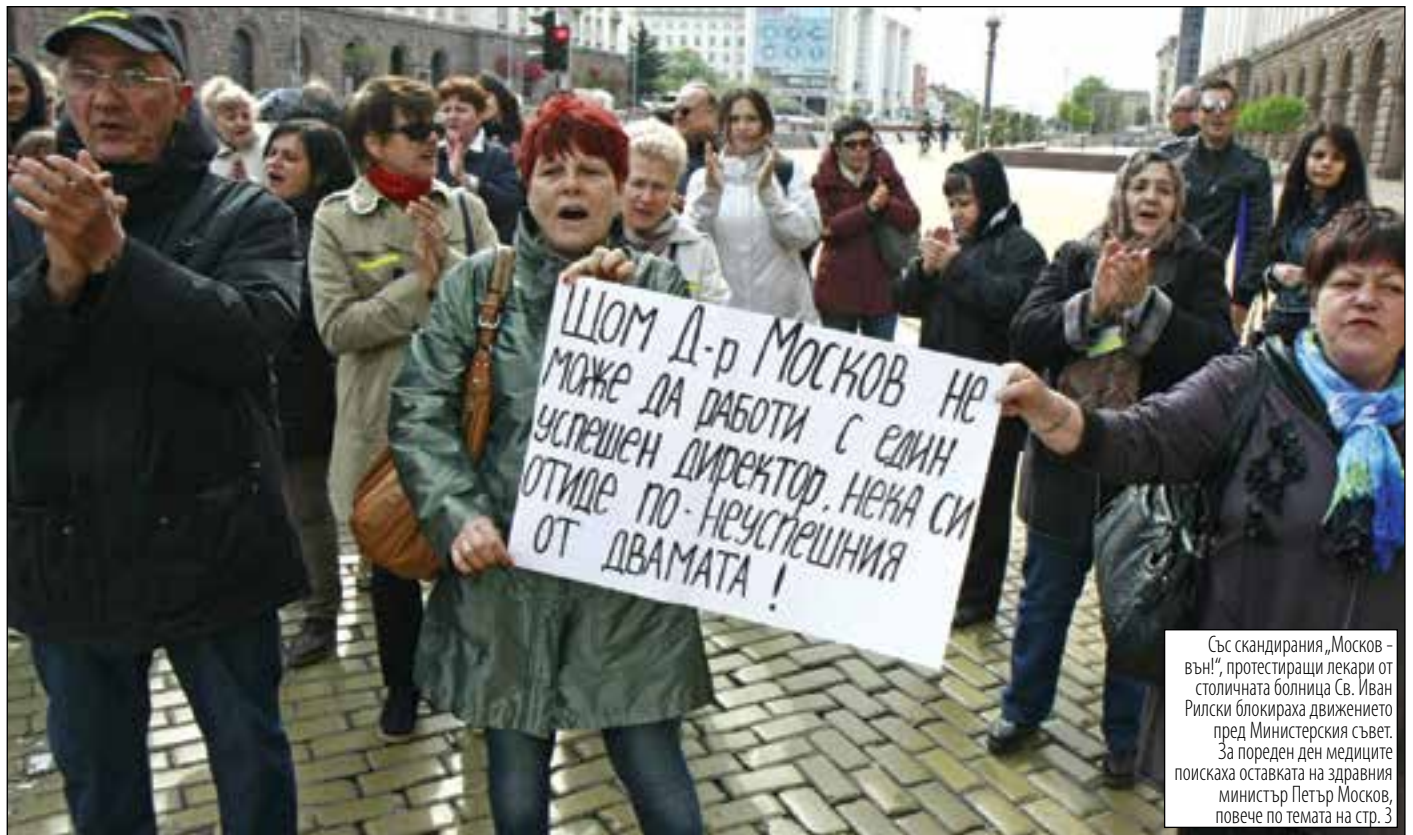 ЩОМ Д-р МОСКОВ НЕ
МОЖЕ ДА РАБОТИ С ЕДИН
УСПЕШЕН ДИРЕКТОР, НЕКА СИ
ОТИДЕ ПО-НЕУСПЕШНИЯ
ОТ ДВАМАТА!
Със скандирания „Москов -
вън!“, протестиращи лекари от
столичната болница Св. Иван
Рилски блокираха движението
пред Министерския съвет.
За пореден ден медиците
поискаха оставката на здравния
министър Петър Москов,
повече по темата на стр. 3